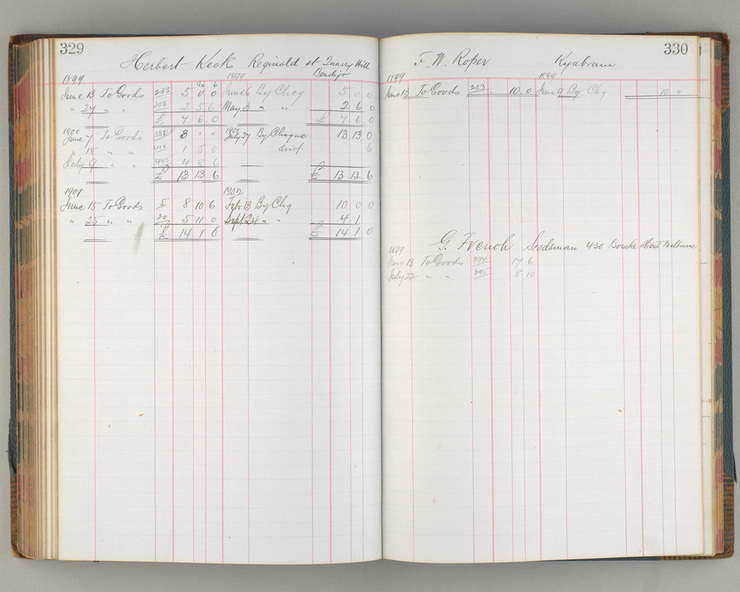 329
Herbert Keck Reginald st Quarry Hill
Bendigo
1899 1899
June 13 To Goods 233 5 0 0 By Chq 5 0 0
" 27 " " 2 5 6 May 3 " " 2 6 0
£ 7 6 0 £ 7 6 0
1900 1901
June 7 To Goods 8 " " July 27 By Cheque 13 13 0
" 18 " " 1 5 0 6
July 9 " " 4 8 6
£ 13 13 6 £ 13 13 6
1901 1902
June 15 To Goods 8 10 6 Feb 13 By Chq 10 0 0
" 25 " " 5 11 0 Sept 24 " " 4 1
£ 14 1 6 £ 14 1 0
330
F. W. Roper Kyabram
1899 1899
June 13 To Goods 233 10 0 June 9 By Chq 10 0
G. French Seedsman 430 Bourke Street Melbourne
1899
June 13 To Goods 234 17 6
July 22 " " 295 8 10